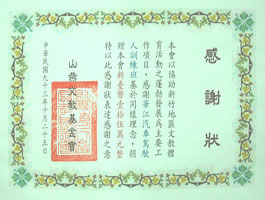 感謝狀
本會以協助新竹地區文教體
育活動之蓬勃發展為主要工
作項目，感謝華江汽車駕駛
人訓練班基於同樣理念，捐
贈本會新臺幣壹拾伍萬元整
特以此感謝狀表達感謝之意
山燕文教基金會
中華民國九十三年十月二十五日